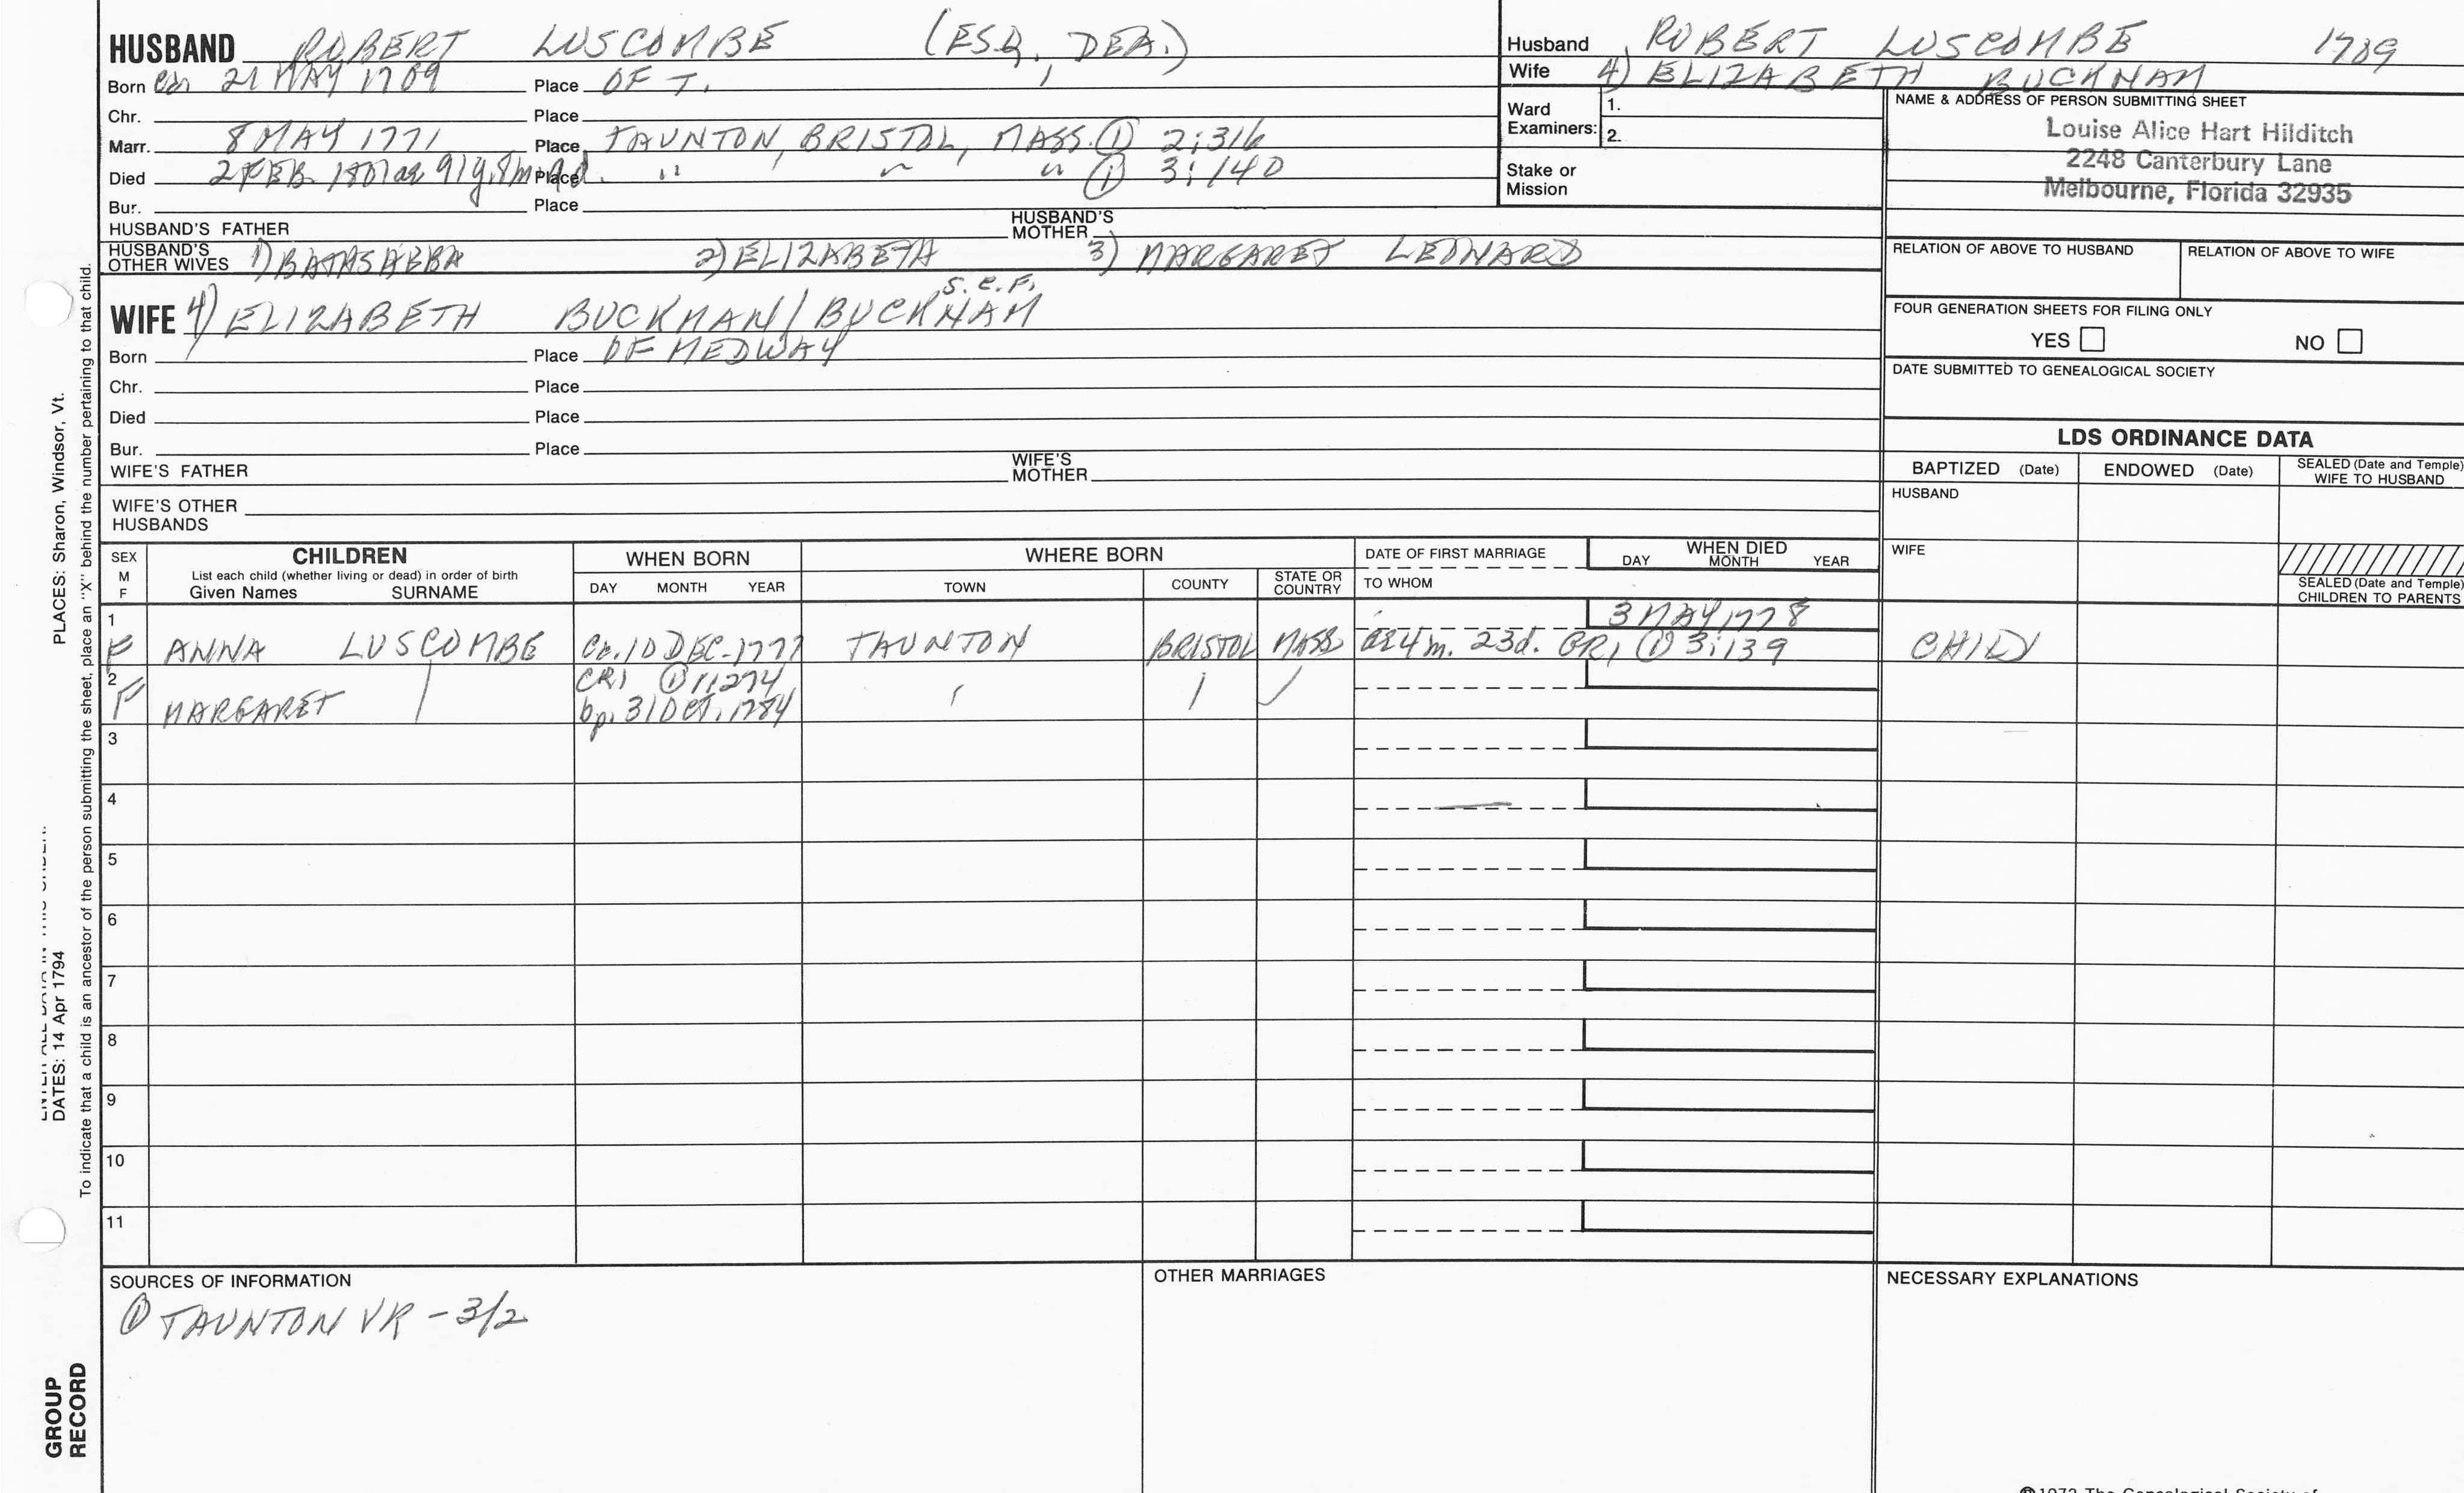 HUSBAND ROBERT LUSCOMBE (ESQ., DEA.)
Born 21 MAY 1709 Place OF T.
Chr. Place
Marr. 8 MAY 1771 Place TAUNTON, BRISTOL, MASS. ① 2:316
Died 2 FEB. 1801 ae 91y. 8m. d. Place " " " ① 3:140
Bur. Place
HUSBAND'S FATHER HUSBAND'S MOTHER
HUSBAND'S OTHER WIVES 1) BATHSHEBA 2) ELIZABETH 3) MARGARET LEONARD
S.C.F.
WIFE 4) ELIZABETH BUCKMAN/BUCKNAM
Born Place OF MEDWAY
Chr. Place
Died Place
Bur. Place
WIFE'S FATHER WIFE'S MOTHER
WIFE'S OTHER HUSBANDS
Husband ROBERT LUSCOMBE 1709
Wife 4) ELIZABETH BUCKNAM
Ward Examiners: 1.
2.
Stake or Mission
NAME & ADDRESS OF PERSON SUBMITTING SHEET
Louise Alice Hart Hilditch
2248 Canterbury Lane
Melbourne, Florida 32935
RELATION OF ABOVE TO HUSBAND RELATION OF ABOVE TO WIFE
FOUR GENERATION SHEETS FOR FILING ONLY
YES NO
DATE SUBMITTED TO GENEALOGICAL SOCIETY
LDS ORDINANCE DATA
BAPTIZED (Date) ENDOWED (Date) SEALED (Date and Temple) WIFE TO HUSBAND
HUSBAND
WIFE
SEALED (Date and Temple) CHILDREN TO PARENTS
SEX M F
CHILDREN
List each child (whether living or dead) in order of birth
Given Names SURNAME
WHEN BORN
DAY MONTH YEAR
WHERE BORN
TOWN COUNTY STATE OR COUNTRY
DATE OF FIRST MARRIAGE
TO WHOM
WHEN DIED
DAY MONTH YEAR
1 3 MAY 1778
F ANNA LUSCOMBE Ca. 10 DEC. 1777 TAUNTON BRISTOL MASS ae 4m. 23d. GR1 ① 3:139 CHILD
2 CR1 ① 1:274
F MARGARET bp. 31 OCT. 1784
3
4
5
6
7
8
9
10
11
SOURCES OF INFORMATION
① TAUNTON VR - 3/2
OTHER MARRIAGES
NECESSARY EXPLANATIONS
PLACES: Sharon, Windsor, Vt.
DATES: 14 Apr 1794
To indicate that a child is an ancestor of the person submitting the sheet, place an "X" behind the number pertaining to that child.
GROUP
RECORD